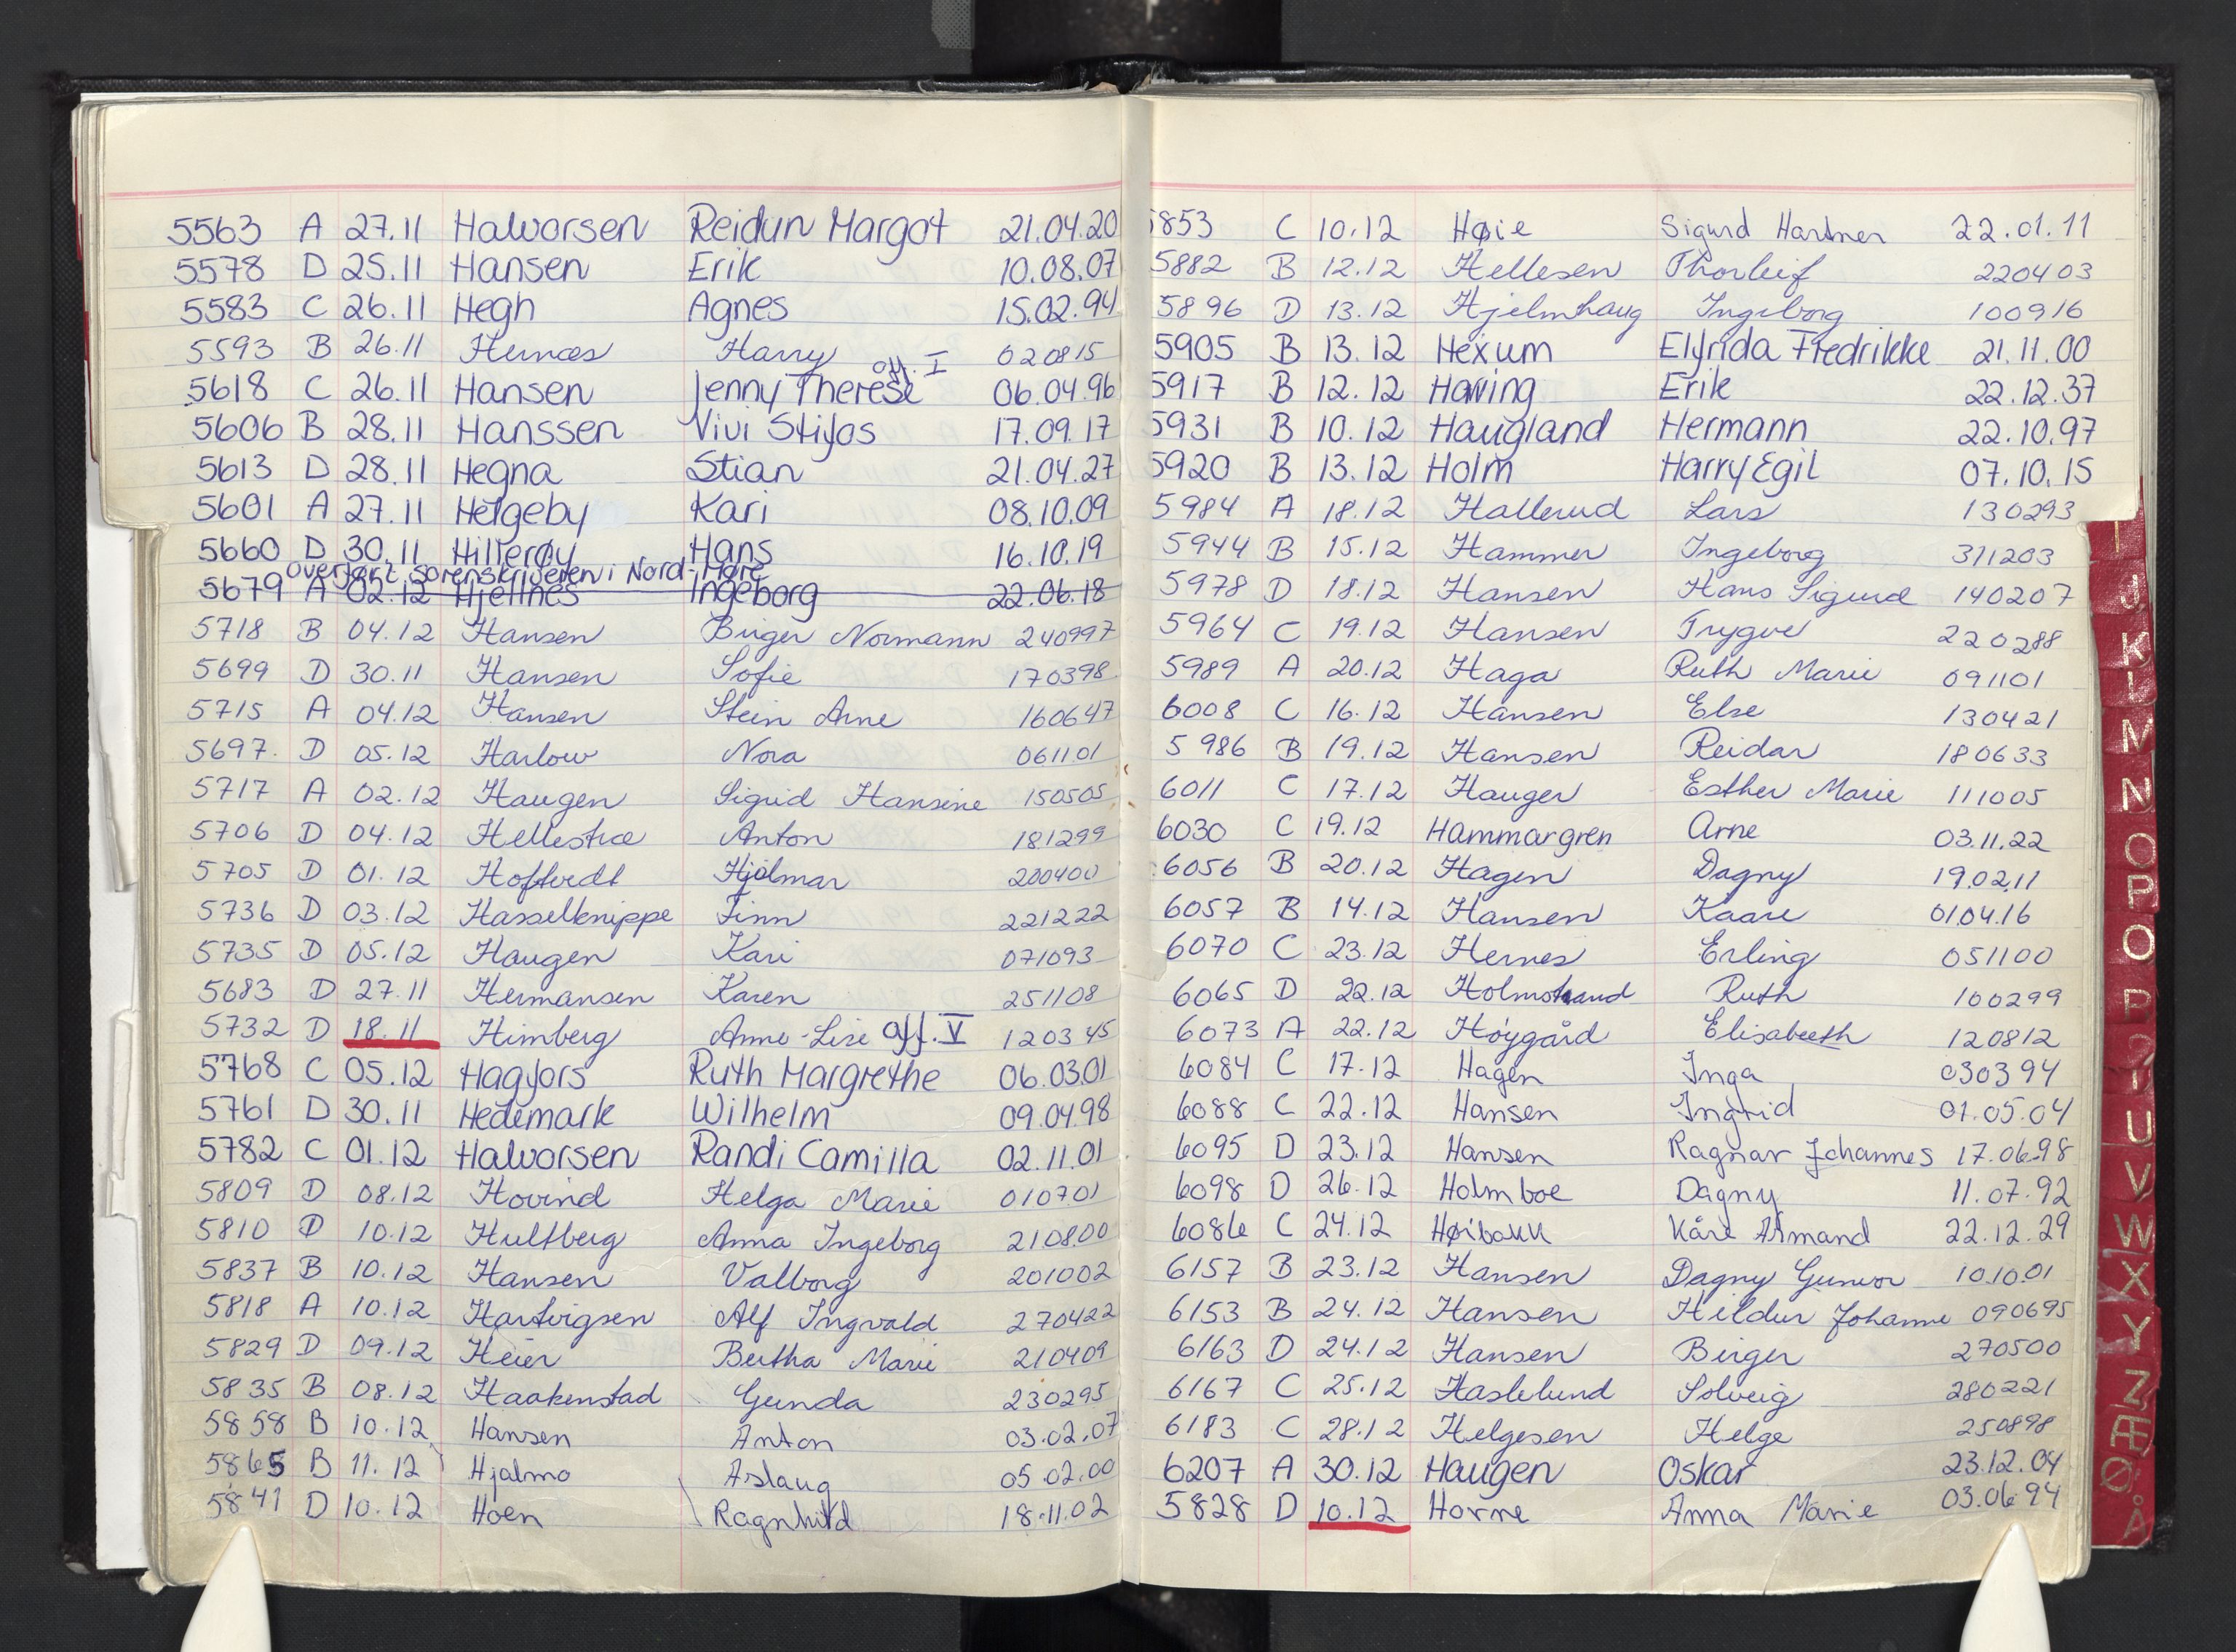 5563 A 27.11 Halvorsen Reidun Margot 21.04.20
5578 D 25.11 Hansen Erik 10.08.07
5583 C 26.11 Hegh Agnes 15.02.94
5593 B 26.11 Hernæs Harry 020815
off. I
5618 C 26.11 Hansen Jenny Therese 06.04.96
5606 B 28.11 Hanssen Vivi Stifos 17.09.17
5613 D 28.11 Hegna Stian 21.04.27
5601 A 27.11 Helgeby Kari 08.10.09
5660 D 30.11 Hillerøy Hans 16.10.19
overført sorenskriveren i Nord-Møre
5679 A 02.12 Hjellnes Ingeborg 22.06.18
5718 B 04.12 Hansen Birger Normann 240997
5699 D 30.11 Hansen Sofie 170398
5715 A 04.12 Hansen Stein Arne 160647
5697. D 05.12 Harlow Nora 061101
5717 A 02.12 Haugen Sigrid Hansine 150505
5706 D 04.12 Hellestræ Anton 181299
5705 D 01.12 Hoftvedt Hjalmar 200400
5736 D 03.12 Hasselknippe Finn 221222
5735 D 05.12 Haugen Kari 071093
5683 D 27.11 Hermansen Karen 251108
5732 D 18.11 Himberg Anne-Lise Off. V 120345
5768 C 05.12 Hagfors Ruth Margrethe 06.03.01
5761 D 30.11 Hedemark Wilhelm 09.04.98
5782 C 01.12 Halvorsen Randi Camilla 02.11.01
5809 D 08.12 Hovind Helga Marie 010701
5810 D 10.12 Hultberg Anna Ingeborg 210800
5837 B 10.12 Hansen Valborg 201002
5818 A 10.12 Hartvigsen Alf Ingvald 270422
5829 D 09.12 Heier Bertha Marie 210409
5835 B 08.12 Haakenstad Gunda 230295
5858 B 10.12 Hansen Anton 03.02.07
5865 B 11.12 Hjalmo Aslaug 05.02.00
5841 D 10.12 Hoen Ragnhild 18.11.02
5853 C 10.12 Høie Sigurd Hartner 22.01.11
5882 B 12.12 Hellesen Thorleif 220403
5896 D 13.12 Hjelmhaug Ingeborg 100916
5905 B 13.12 Hexum Elfrida Fredrikke 21.11.00
5917 B 12.12 Høving Erik 22.12.37
5931 B 10.12 Haugland Hermann 22.10.97
5920 B 13.12 Holm Harry Egil 07.10.15
5984 A 18.12 Hallerud Lars 130293
5944 B 15.12 Hammer Ingeborg 311203
5978 D 18.12 Hansen Hans Sigurd 140207
5964 C 19.12 Hansen Trygve 220288
5989 A 20.12 Haga Ruth Marie 091101
6008 C 16.12 Hansen Else 130421
5986 B 19.12 Hansen Reidar 180633
6011 C 17.12 Hauger Esther Marie 111005
6030 C 19.12 Hammargren Arne 03.11.22
6056 B 20.12 Hagen Dagny 19.02.11
6057 B 14.12 Hansen Kaare 01.04.16
6070 C 23.12 Hernes Erling 051100
6065 D 22.12 Holmstrand Ruth 100299
6073 A 22.12 Høygård Elisabeth 120812
6084 C 17.12 Hagen Inga 030394
6088 C 22.12 Hansen Ingrid 01.05.04
6095 D 23.12 Hansen Ragnar Johannes 17.06.98
6098 D 26.12 Holmboe Dagny 11.07.92
6086 C 24.12 Høibakk Kåre Armand 22.12.29
6157 B 23.12 Hansen Dagny Gunvor 10.10.01
6153 B 24.12 Hansen Hildur Johanne 090695
6163 D 24.12 Hansen Birger 270500
6167 C 25.12 Haslelund Solveig 280221
6183 C 28.12 Helgesen Helge 250898
6207 A 30.12 Haugen Oskar 23.12.04
5828 D 10.12 Horne Anna Marie 03.06.94
J
K
L
M
N
O
P
U
V
W
X
Y
Z
Æ
Ø
Å